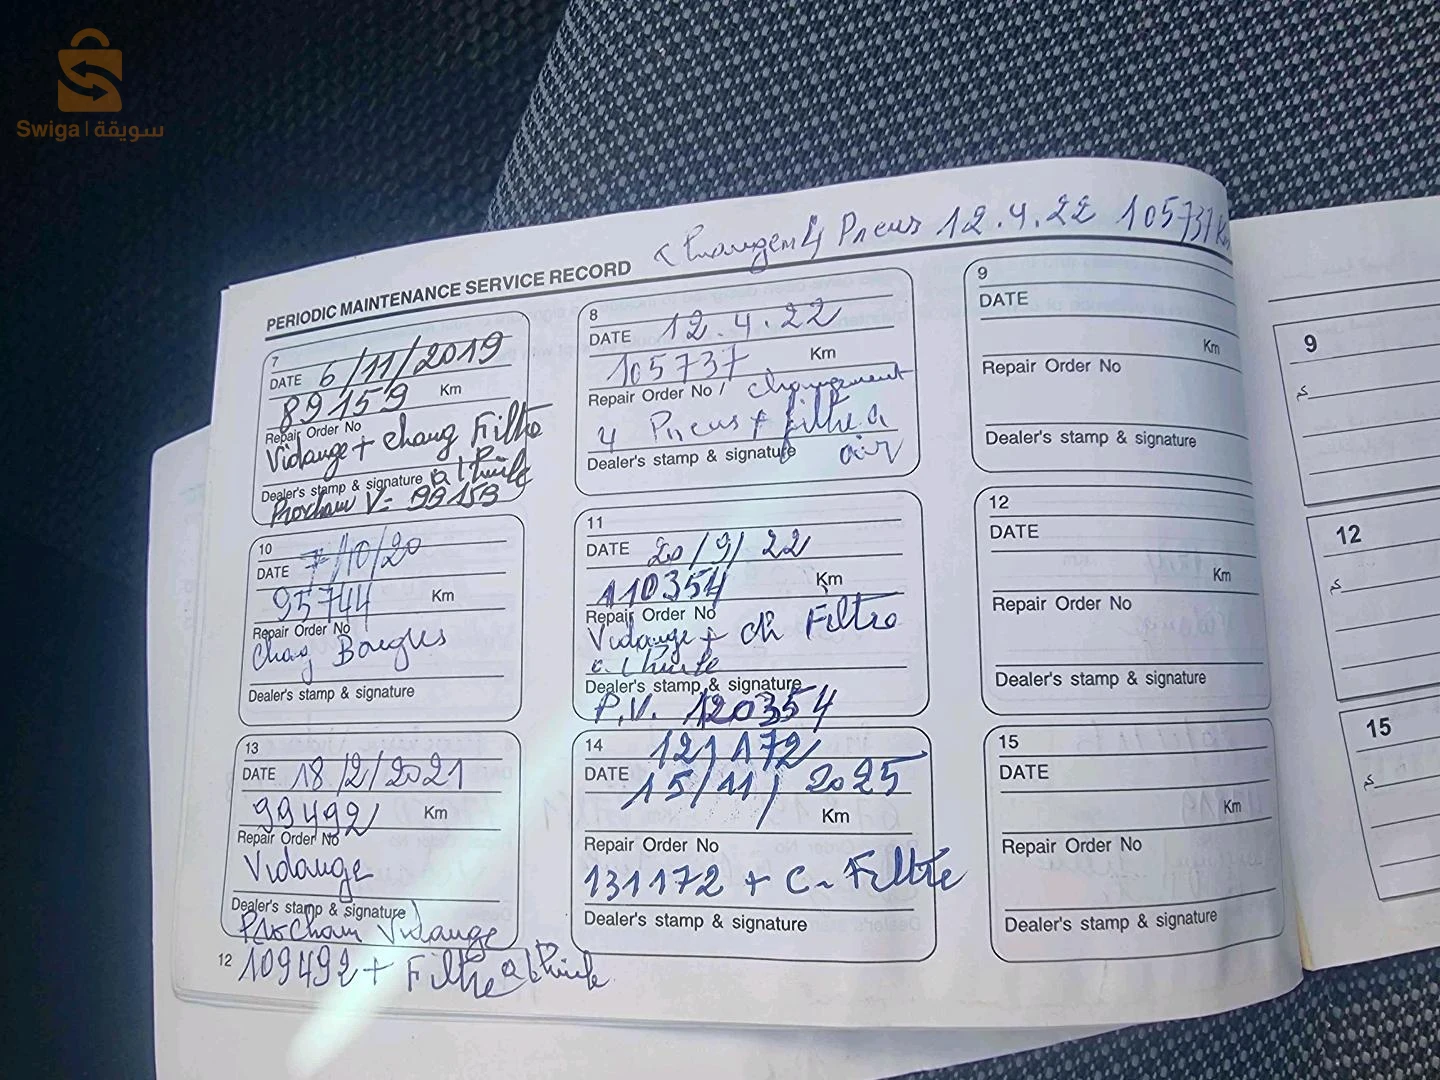 Swiga | سويقة
PERIODIC MAINTENANCE SERVICE RECORD
Changem 4 Pneus 12.4.22 105737 Km
7
DATE 6/11/2019
89159 Km
Repair Order No
Vidange + chang Filtre
Dealer's stamp & signature a l'huile
Prochain V= 99159
8
DATE 12.4.22
105737 Km
Repair Order No / changement
4 Pneus + filtre a
Dealer's stamp & signature air
9
DATE
Km
Repair Order No
Dealer's stamp & signature
10
DATE 7/10/20
95744 Km
Repair Order No
Chag Bougies
Dealer's stamp & signature
11
DATE 20/9/22
110354 Km
Repair Order No
Vidange + ch Filtre
a l'huile
Dealer's stamp & signature
P.V. 120354
12
DATE
Km
Repair Order No
Dealer's stamp & signature
13
DATE 18/2/2021
99492 Km
Repair Order No
Vidange
Dealer's stamp & signature
Prochain Vidange
12 109492 + Filtre a l'huile
14 121172
DATE 15/11/2025
Km
Repair Order No
131172 + C- Filtre
Dealer's stamp & signature
15
DATE
Km
Repair Order No
Dealer's stamp & signature
9
12
15